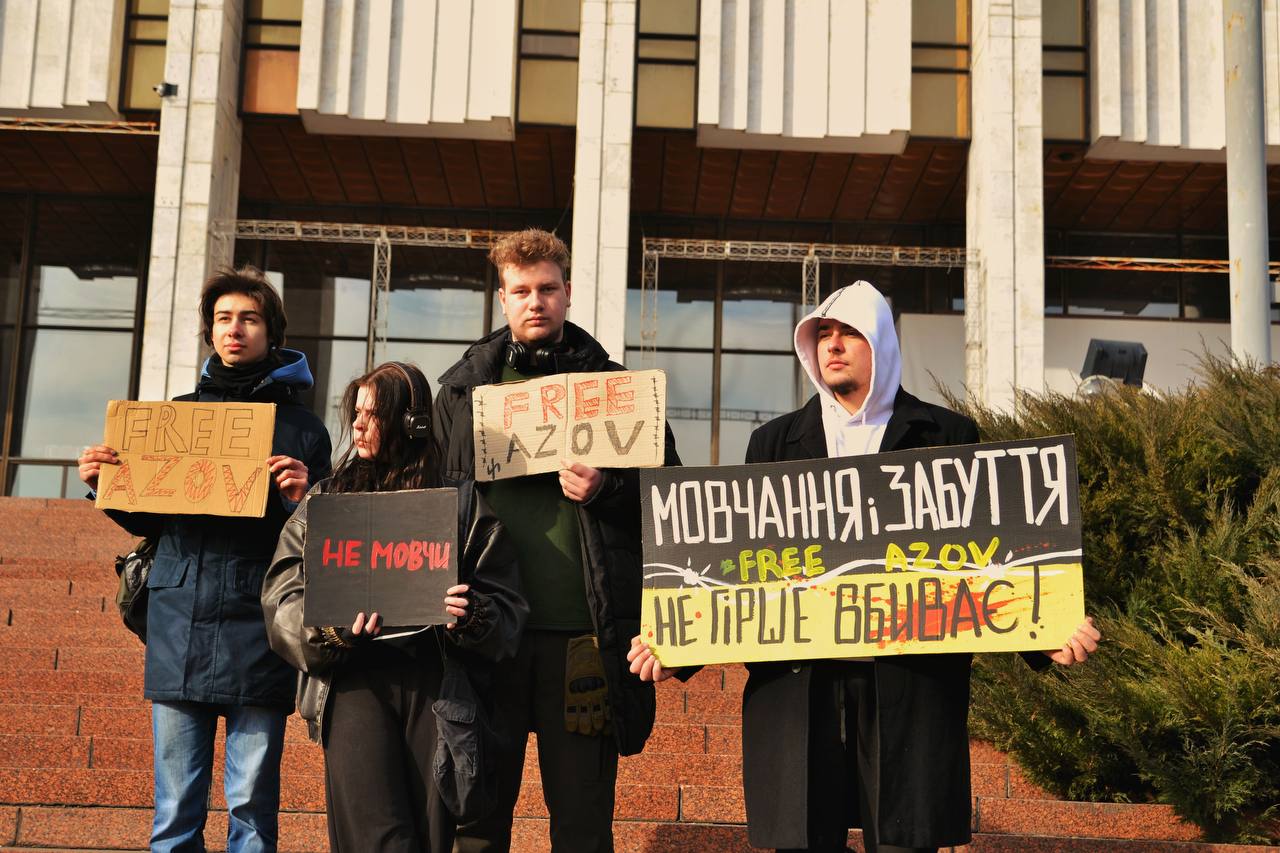 FREE
AZOV
НЕ МОВЧИ
FREE
AZOV
МОВЧАННЯ і ЗАБУТТЯ
#FREE AZOV
НЕ ГІРШЕ ВБИВАЄ!